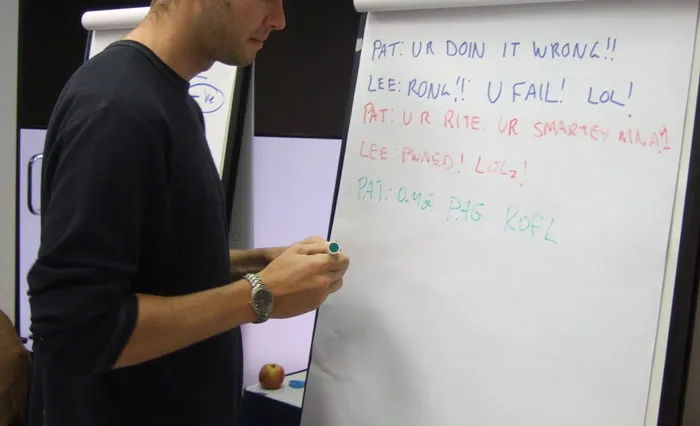 -ve
PAT: UR DOIN IT WRONG!!
LEE: RONG!! U FAIL! LOL!
PAT: U R RITE. UR SMARTEY MNA!1
LEE: PWNED! LOLz!
PAT: OMG PAG ROFL